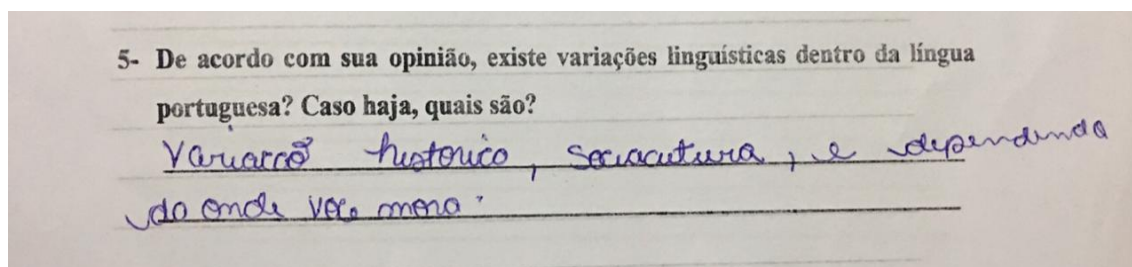 5- De acordo com sua opinião, existe variações linguísticas dentro da língua
portuguesa? Caso haja, quais são?
Variaccõ historico, sociacutura, e dependendo
do onde voce mora.